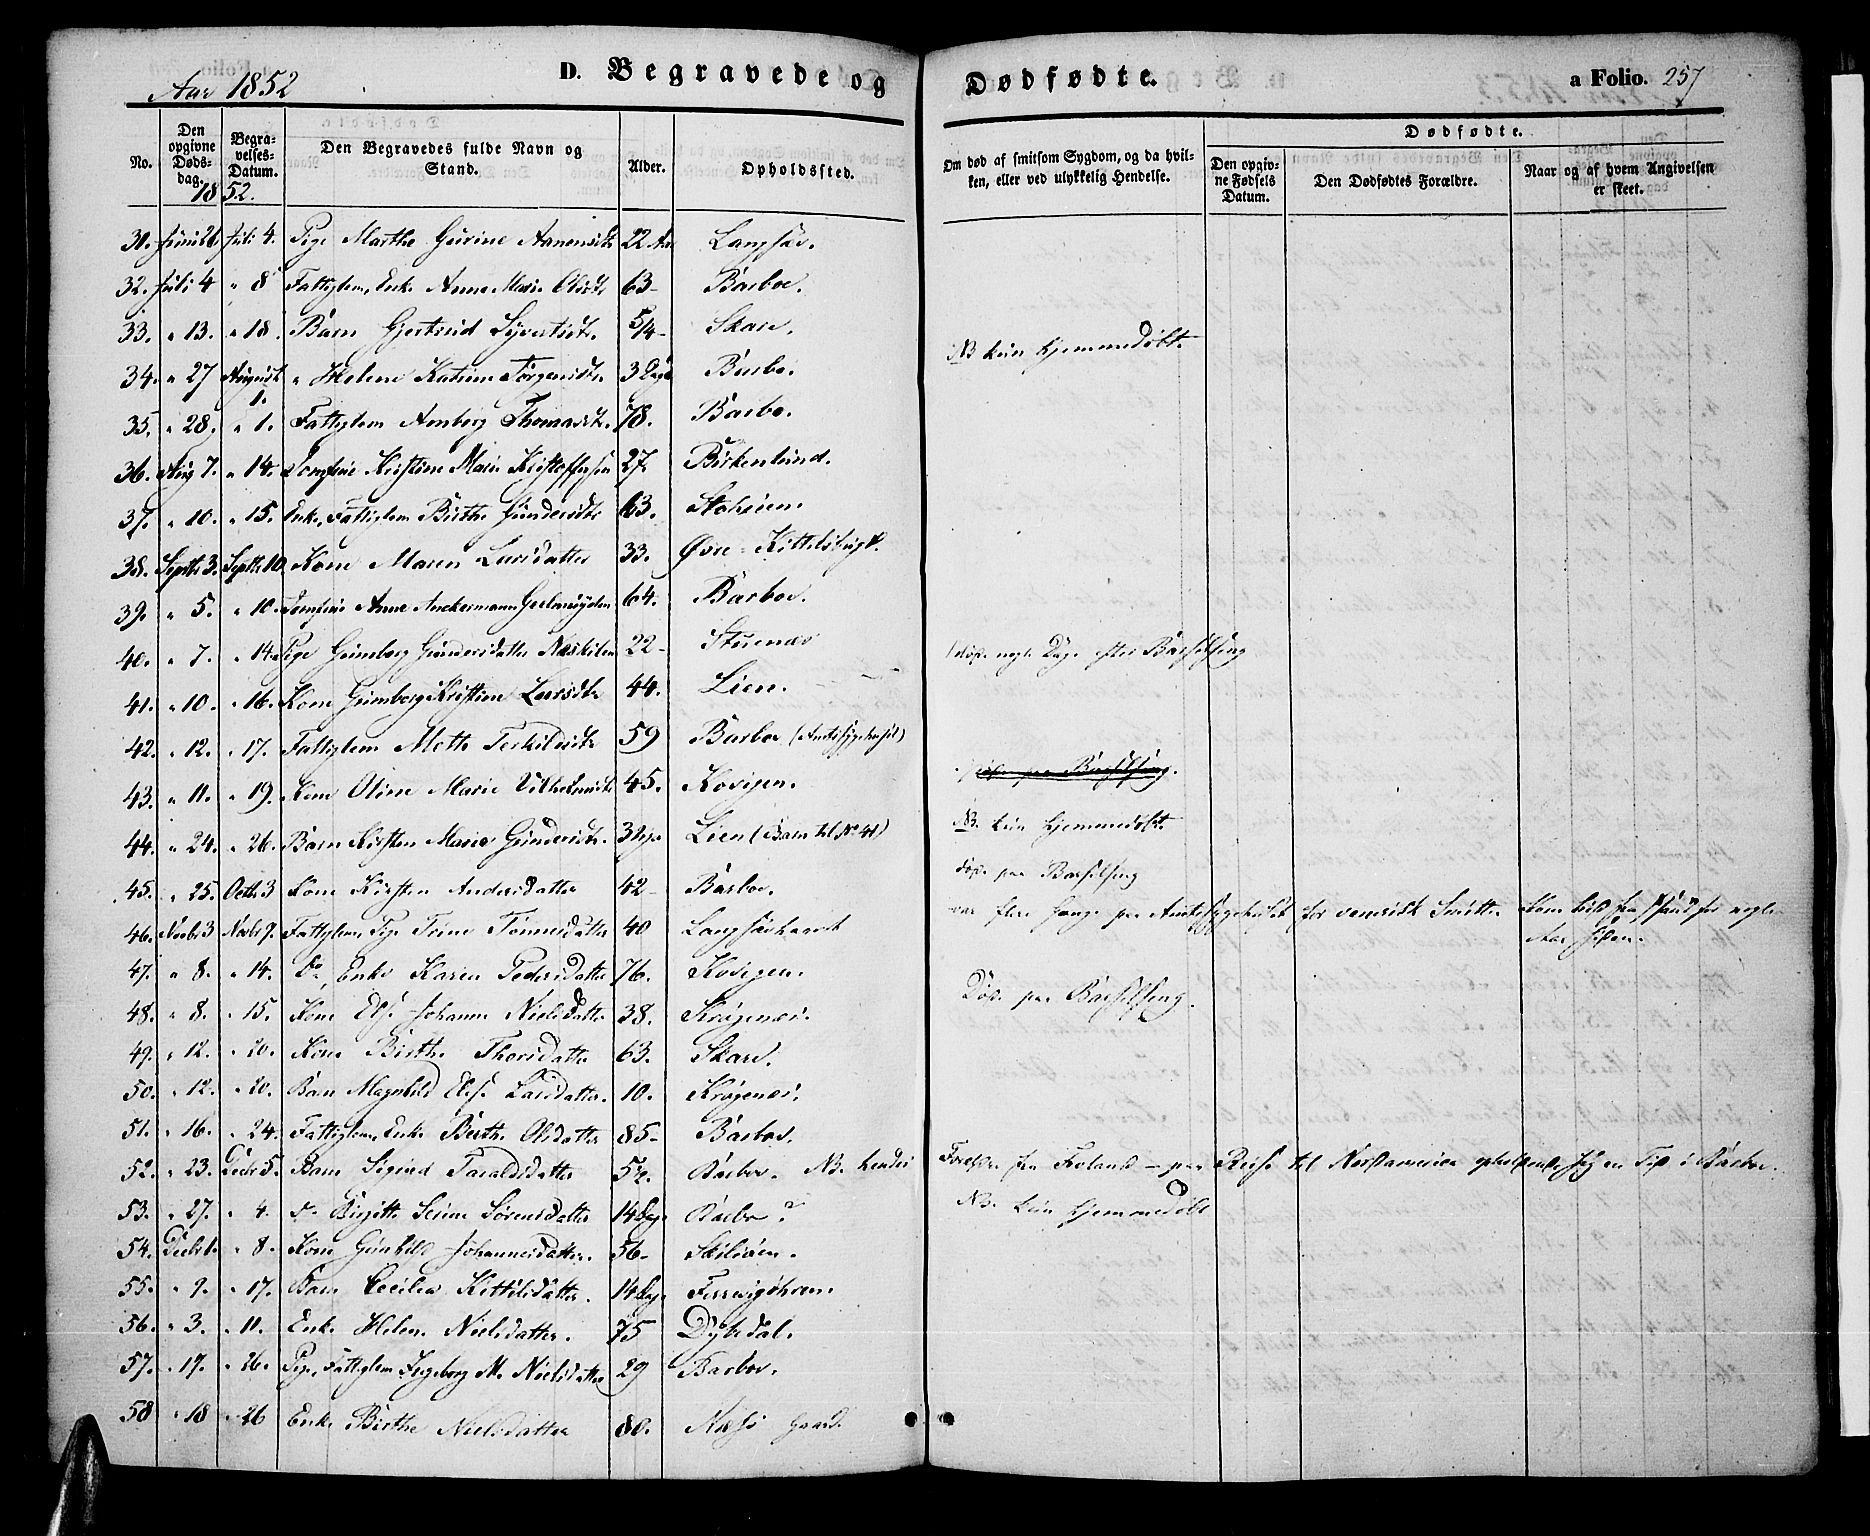 Aar 1852
D. Begravede og Dødfødte.
a Folio. 257
No.
Den opgivne Døds-dag.
Begra-velses-Datum.
Den Begravedes fulde Navn og Stand.
Alder.
Opholdssted.
Om død af smitsom Sygdom, og da hvil-ken, eller ved ulykkelig Hendelse.
Dødfødte.
Den opgiv-ne Fødsels Datum.
Den Dødfødtes Forældre.
Naar og af hvem Angivelsen er skeet.
1852.
31. Juni 26 Juli 4. Pige Marthe Gurine Aanensdtr 22 Aar Langsæv.
32. Juli 4 " 8 Fattiglem, Enke Anne Marie Olsdtr 63- Barboe.
33. " 13. " 18. Barn Gjertrud Syvertsdtr. 5/4- Skare.
34. " 27 August 1. " Helene Katrine Jørgensdtr 3 Dage Barbo. NB kun hjemmedøbt.
35. " 28. " 1. Fattiglem Amberg Thomasdtr. 78. Barbo.
36. Aug 7. " 14. Jomfrue Kirstine Marie Kristoffersen 27 Birkenlund.
37. " 10. " 15. Enke, Fattiglem Birthe Gundersdtr 63. Stoheien.
38. Septbr 3. Septbr 10. Kone Maren Larsdatter 33. Øvre-Kittelsbugt.
39. " 5. " 10. Jomfrue Anne Anckermann Geelmuyden 64. Barboe.
40. " 7. " 14. Pige Gunborg Gundersdatter Næskilen 22- Stuenæs døde nogle Dage efter Barselseng
41. " 10. " 16. Kone Gunborg Kristine Larsdtr 44. Lien.
42. " 12. " 17. Fattiglem Mette Terkildsdtr 59 Barboe (Amtssygehuset)
43. " 11. " 19. Kone Oline Marie Vilhelmsdtr 45. Kovigen. døde paa Barselseng.
44. " 24. " 26. Barn Kirsten Marie Gundersdtr. 3 Uger Lien (Barn til No 41) NB. kun hjemmedøbt.
45. " 25. Octbr 3 Kone Kirsten Andersdatter 42- Barboe. døde paa Barselseng
46. Novbr 3 Novbr 7. Fattiglem, Pige Trine Tønnesdatter 40 Langsæekaret var flere Gange paa Amtssygehuset for venerisk Smitte Kom hid fra for nogle Aar siden.
47. " 8. " 14. Do, Enke Karen Pedersdatter 76. Kovigen.
48. " 8. " 15. Kone Else Johanne Nielsdatter 38. Krøgenæs. Døde paa Barselseng.
49. " 12. " 20. Kone Birthe Thorsdatter 63. Skare.
50. " 12. " 20. Barn Magnhild Else Larsdatter. 10. Krøgenæs.
51. " 16. " 24. Fattiglem, Enke Berthe Olsdatter 85- Barboe.
52. " 23. Decbr 5. Barn Sigrid Taraldsdatter 5½. Barboe. NB. hendes Forældre fra Froland - paa Reise til Nordamerica opholdende sig en Tid i Barboe.
53. " 27. " 4. do Birgitte Serine Sørensdatter 14 Dage Barbo? NB. kun hjemmedøbt
54. Decbr 1. " 8. Kone Gunhild Johannesdatter. 56- Skilsøen.
55. " 9. " 17. Barn Cecilia Kittelsdatter. 14 Dage
56. " 3. " 11. Enke Helene Nielsdatter. 75 Dybedal.
57. " 17. " 26. Pige, Fattiglem Ingeborg M. Nielsdatter 29 Barboe.
58 " 18 " 26 Enke Birthe Nielsdatter 80.